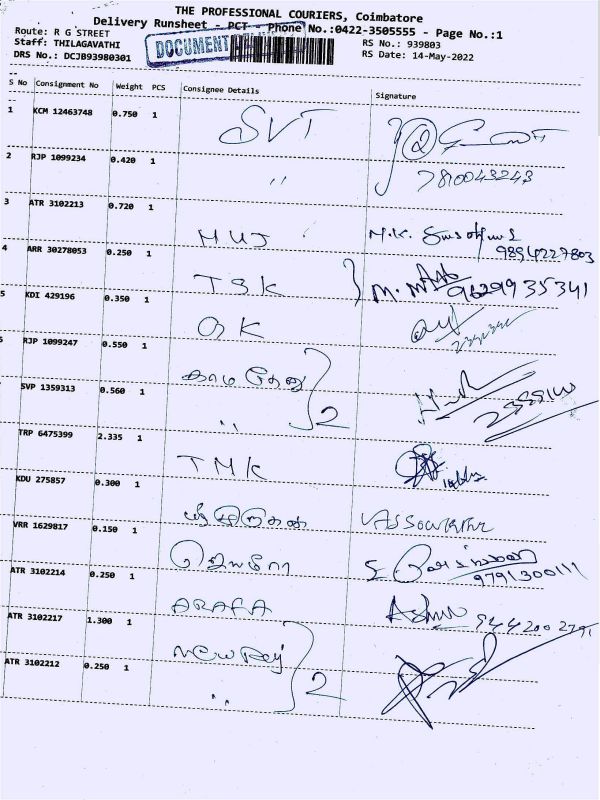 THE PROFESSIONAL COURIERS, Coimbatore
Delivery Runsheet - PCT - Phone No.:0422-3505555 - Page No.:1
Route: R G STREET
Staff: THILAGAVATHI RS No.: 939803
DRS No.: DCJB93980301 RS Date: 14-May-2022
DOCUMENT
S No Consignment No Weight PCS Consignee Details Signature
1 KCM 12463748 0.750 1 SVT
2 RJP 1099234 0.420 1 ,, 7810043243
3 ATR 3102213 0.720 1 MUJ M.K.
9894227803
4 ARR 30278053 0.250 1 TSK 9629935341
5 KDI 429196 0.350 1 OK
RJP 1099247 0.550 1 காம தேனு
SVP 1359313 0.560 1 ,, 2
TRP 6475399 2.335 1 TMK
KDU 275857 0.300 1
VRR 1629817 0.150 1
9791300111
ATR 3102214 0.250 1 ARAFA
ATR 3102217 1.300 1 New
ATR 3102212 0.250 1 ,, 2